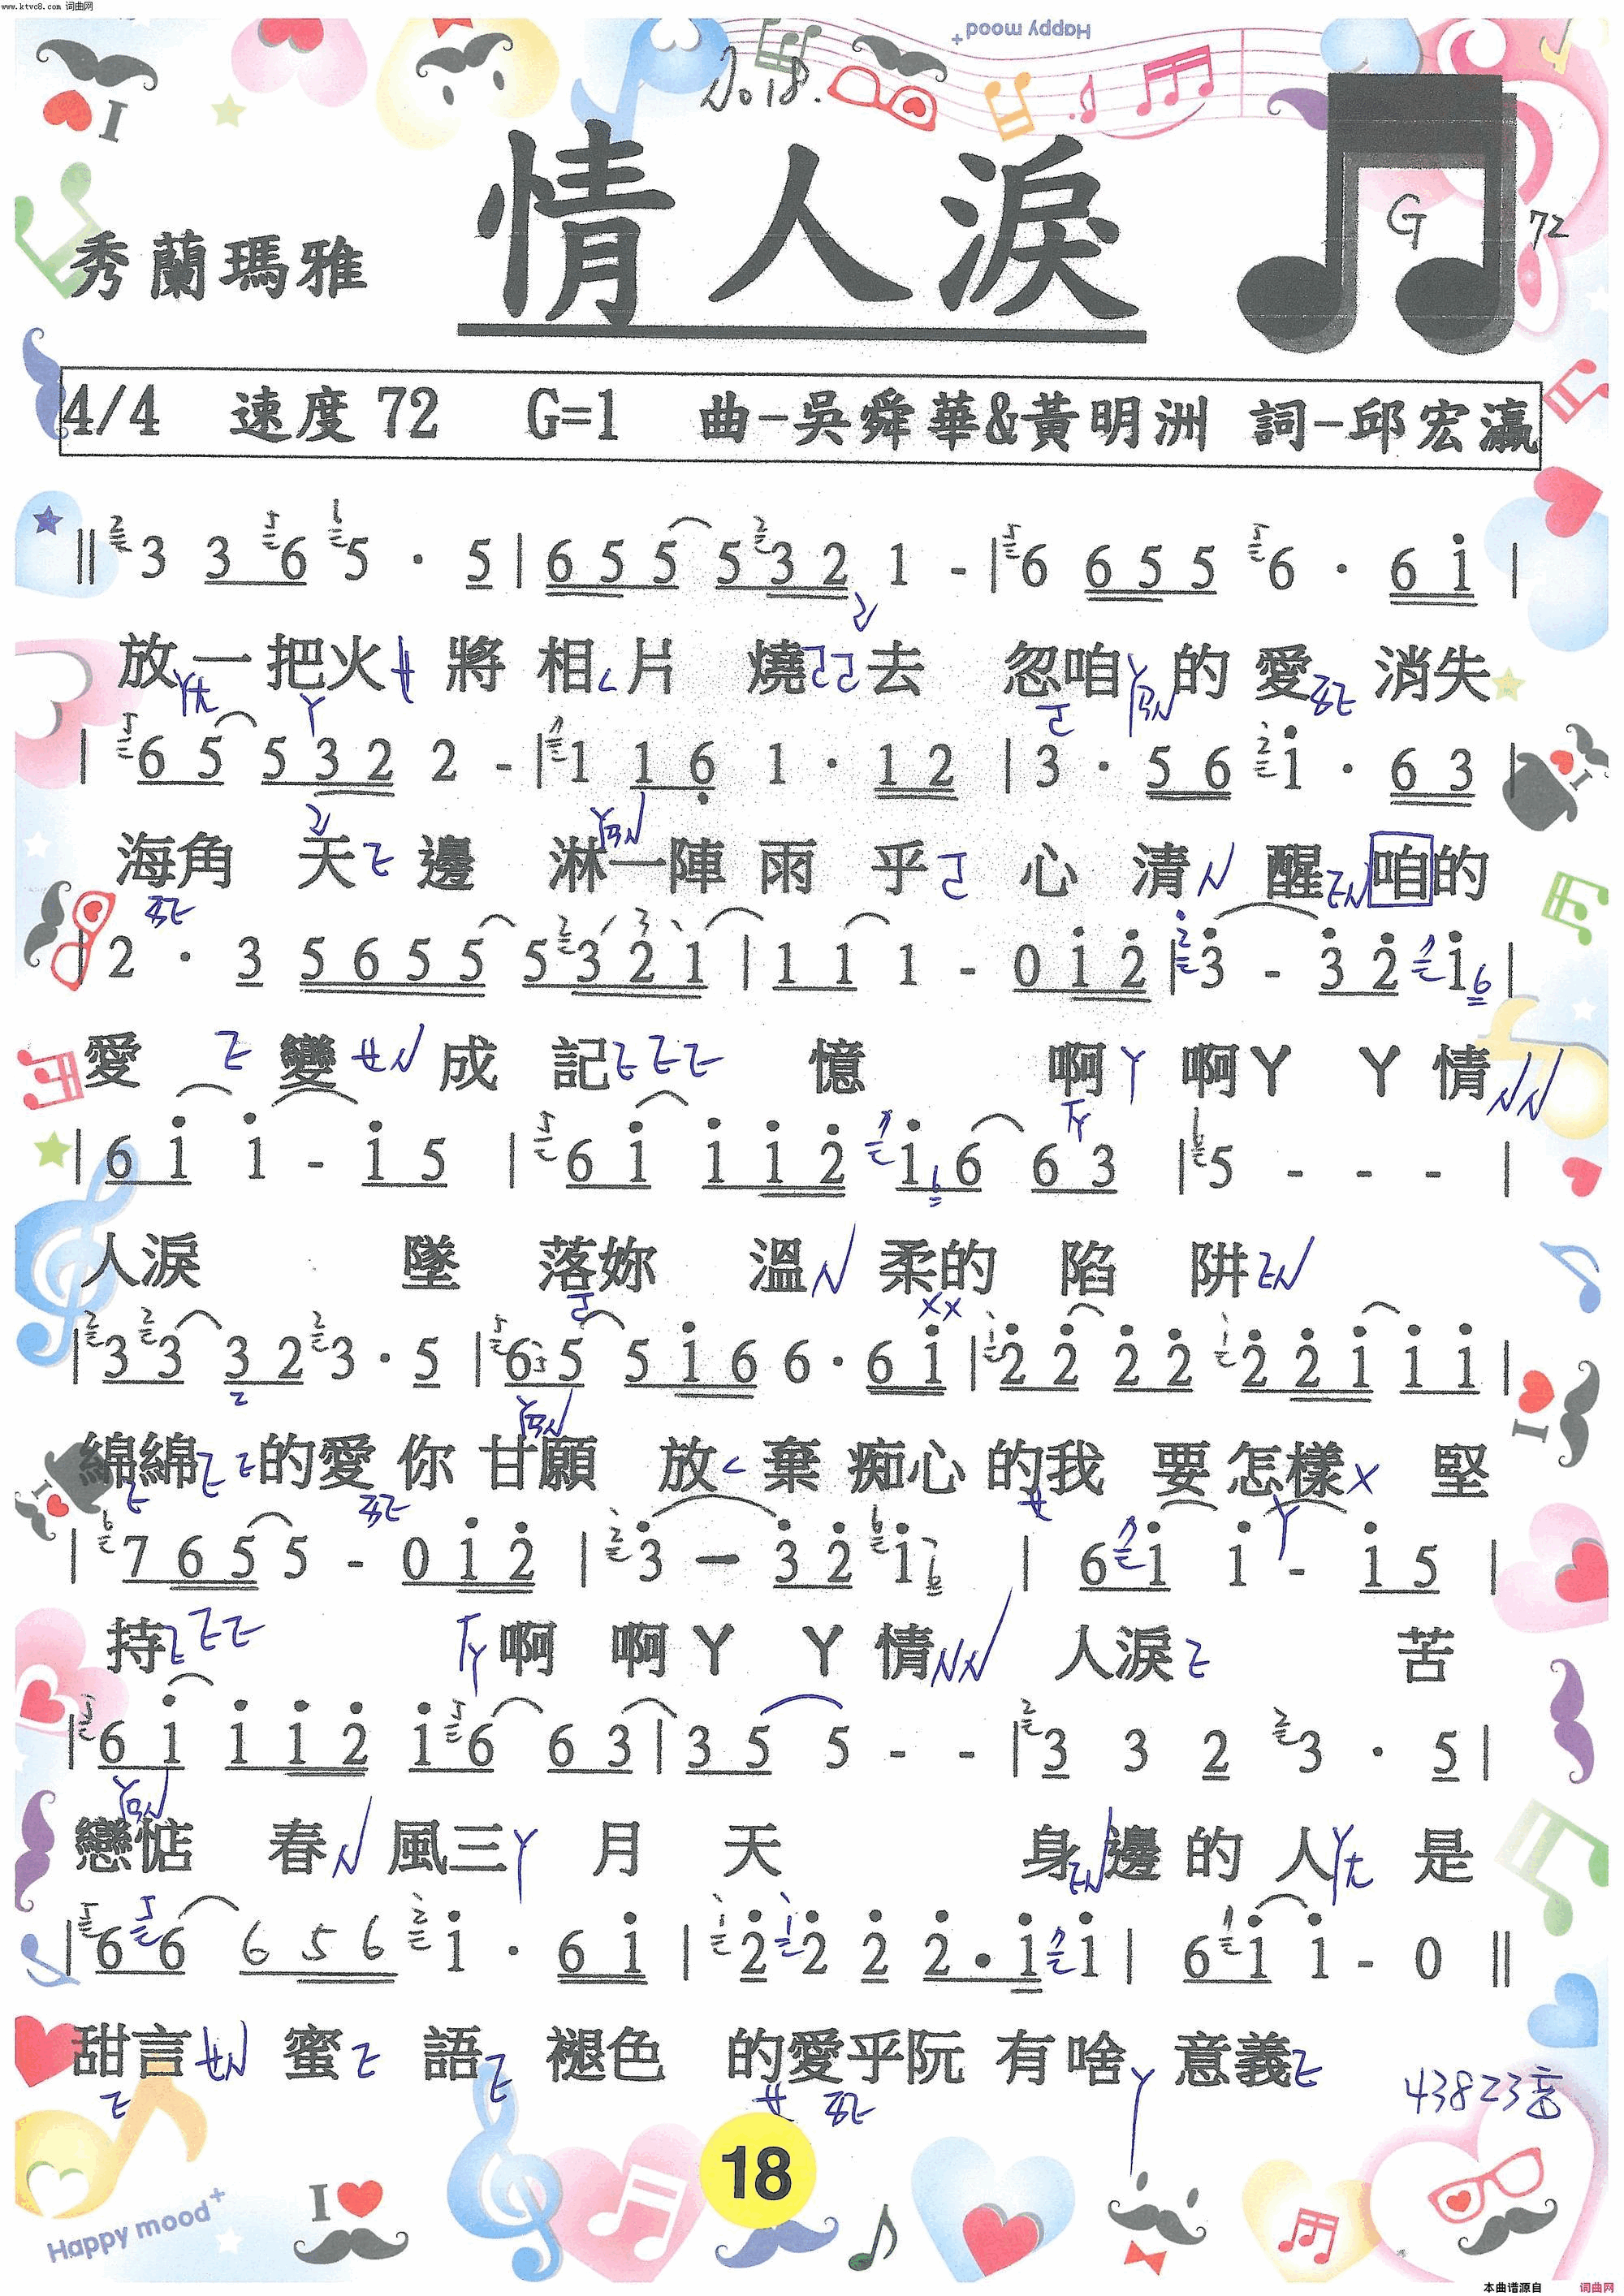 www.ktvc8.com 词曲网
Happy mood+
No 18.
情人淚
秀蘭瑪雅
G
72
4/4 速度 72 G=1 曲-吳舜華&黃明洲 詞-邱宏瀛
‖ 3 3 6 5 · 5 | 6 5 5 5 3 2 1 - | 6 6 5 5 6 · 6 i |
放一把火 將 相 片 燒 去 忽咱 的 愛 消失
| 6 5 5 3 2 2 - | 1 1 6 1 · 1 2 | 3 · 5 6 i · 6 3 |
海角 天 邊 淋一陣 雨 乎 心 清 醒 咱的
2 · 3 5 6 5 5 5 3 2 1 | 1 1 1 - 0 i 2 | 3 - 3 2 i 6 |
愛 變 成 記 憶 啊 啊ㄚ ㄚ 情
| 6 i i - i 5 | 6 i i i 2 i 6 6 3 | 5 - - - |
人淚 墜 落妳 溫 柔的 陷 阱
| 3 3 3 2 3 · 5 | 6 5 5 i 6 6 · 6 i | 2 2 2 2 2 2 i i i |
綿綿 的愛 你 甘願 放 棄 痴心 的我 要 怎樣 堅
| 7 6 5 5 - 0 i 2 | 3 - 3 2 i 6 | 6 i i - i 5 |
持 啊 啊 ㄚ ㄚ 情 人淚 苦
| 6 i i i 2 i 6 6 3 | 3 5 5 - - | 3 3 2 3 · 5 |
戀惦 春 風三 月 天 身 邊 的 人 是
| 6 6 6 5 6 i · 6 i | 2 2 2 2 · i i | 6 i i - 0 ‖
甜言 蜜 語 褪色 的愛乎阮 有 啥 意義
43823音
18
Happy mood+
I
本曲谱源自 词曲网